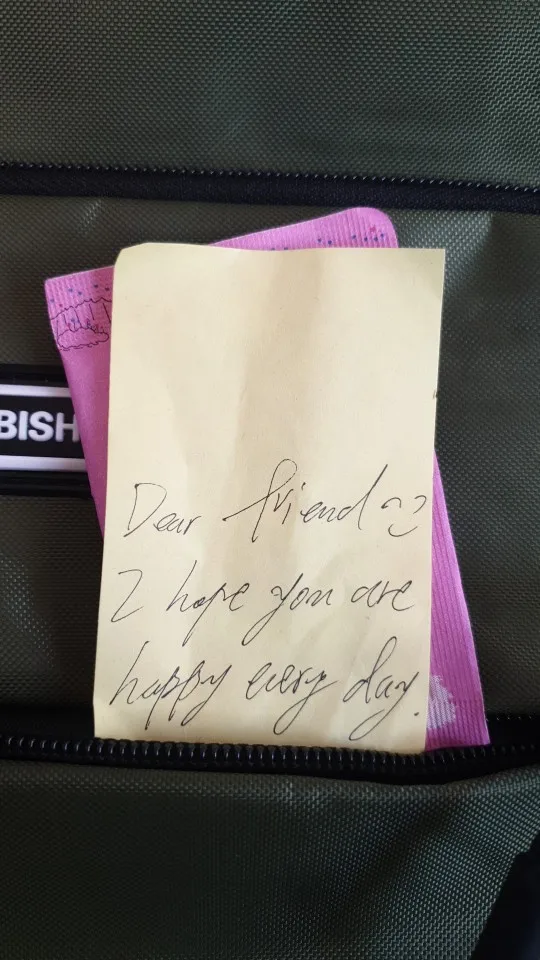 BISH
Dear friend
I hope you are
happy every day.